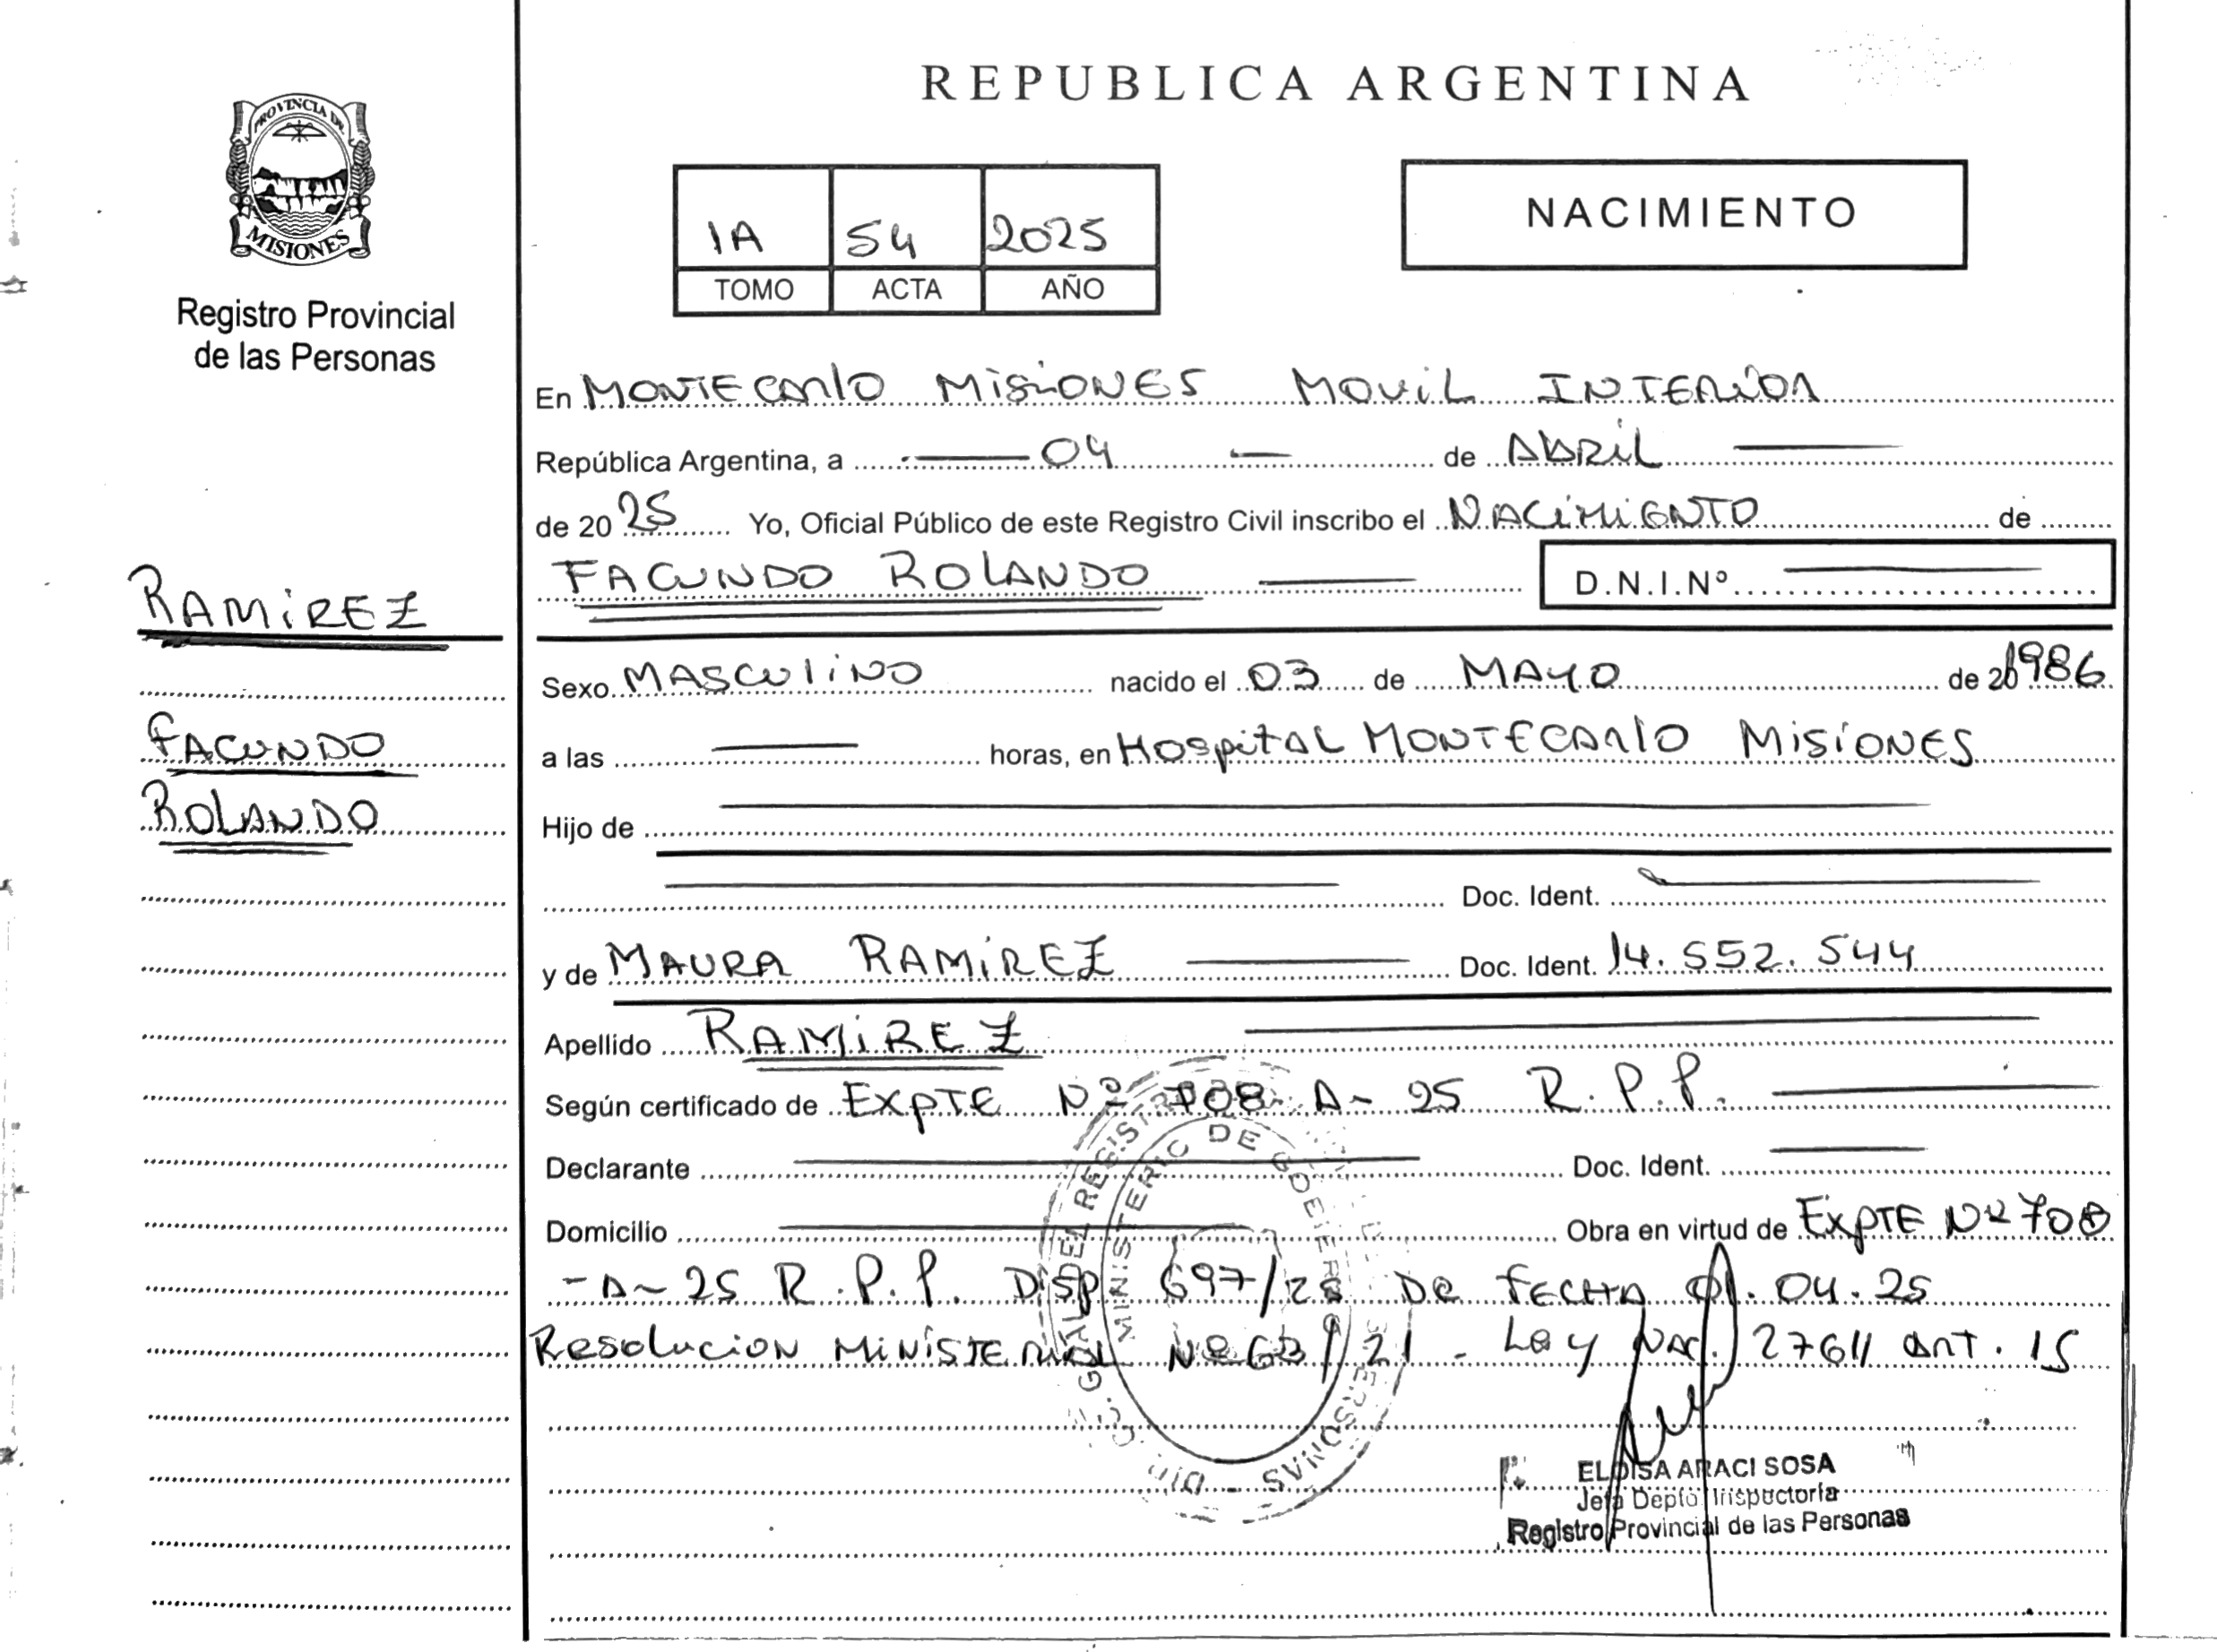 PROVINCIA DE
MISIONES
Registro Provincial
de las Personas
RAMIREZ
FACUNDO
ROLANDO
REPUBLICA ARGENTINA
1A 54 2025
TOMO ACTA AÑO
NACIMIENTO
En MONTECARLO MISIONES MOVIL INTERIOR
República Argentina, a 04 de ABRIL
de 2025 Yo, Oficial Público de este Registro Civil inscribo el NACIMIENTO de
FACUNDO ROLANDO D.N.I.Nº
Sexo MASCULINO nacido el 03 de MAYO de 1986
a las horas, en HOSPITAL MONTECARLO MISIONES
Hijo de
Doc. Ident.
y de MAURA RAMIREZ Doc. Ident. 14.552.544
Apellido RAMIREZ
Según certificado de EXPTE Nº 708 A-25 R.P.P.
Declarante Doc. Ident.
Domicilio Obra en virtud de EXPTE Nº 708
-A-25 R.P.P. DISP 697/25 DE FECHA 01.04.25
RESOLUCION MINISTERIAL Nº 63/21 - LEY NAC. 27611 ART. 15
MINISTERIO DE GOBIERNO
ELOISA ARACI SOSA
Jefa Depto. Inspectoría
Registro Provincial de las Personas